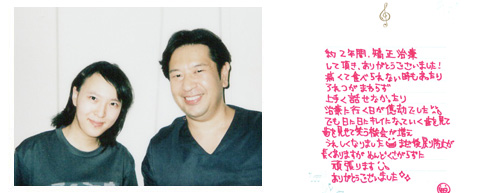 約2年間、矯正治療
して頂き、ありがとうございました!
痛くて食べられない時もあったり
ろれつがまわらず
上手く話せなかったり
治療に行く日が憂うつでした
でも日に日にキレイになっていく歯を見て
歯を見せて笑う機会が増え
うれしくなりました
長くありますが めんどくさがらずに
頑張ります
ありがとうございました